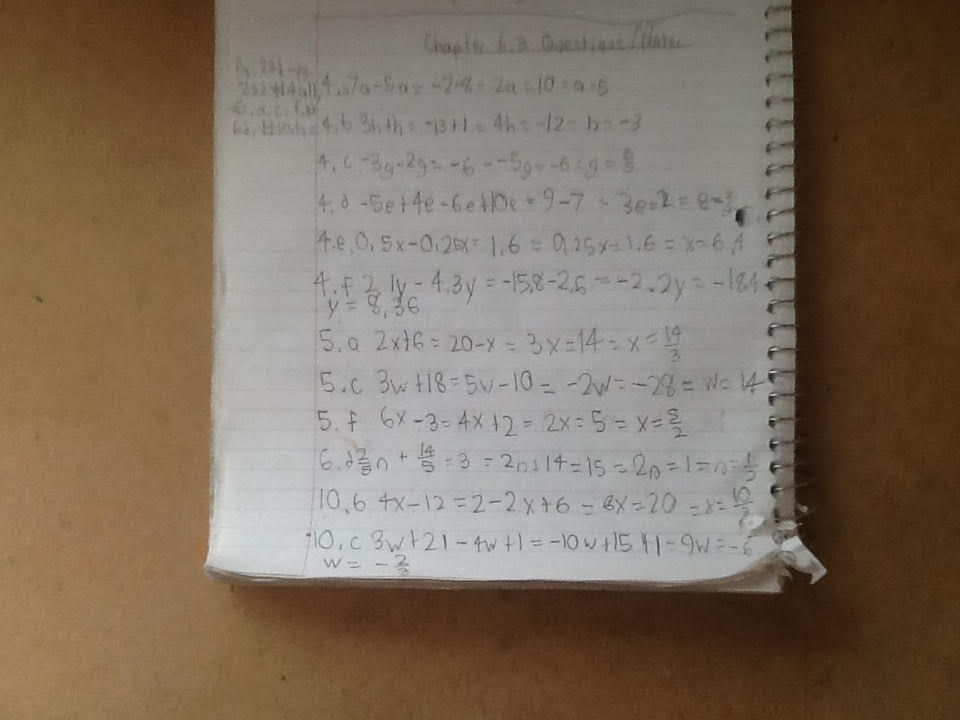 Chapter 6.3 Questions/Notes
4.a 7a-5a = -2-8 = 2a = 10 = a = 5
4.b 3h+h = -13+1 = 4h = -12 = h = -3
4.c -3g-2g = -6 = -5g = -6 = g = 6/5
4.d -5e+4e-6e+10e = 9-7 = 3e=2 = e=2/3
4.e 0,5x-0,25x = 1,6 = 0,25x=1,6 = x=6,4
4.f 2,1y - 4,3y = -15,8-2,6 = -2,2y = -18,4
y = 8,36
5.a 2x+6 = 20-x = 3x=14 = x = 14/3
5.c 3w+18 = 5w-10 = -2w = -28 = w = 14
5.f 6x-3 = 4x+2 = 2x=5 = x=5/2
6.d 2/5n + 14/5 = 3 = 2n+14=15 = 2n=1 = n=1/2
10.b 4x-12 = 2-2x+6 = 6x=20 = x=10/3
10.c 3w+21-4w+1 = -10w+15+1 = 9w=-6
w = -2/3